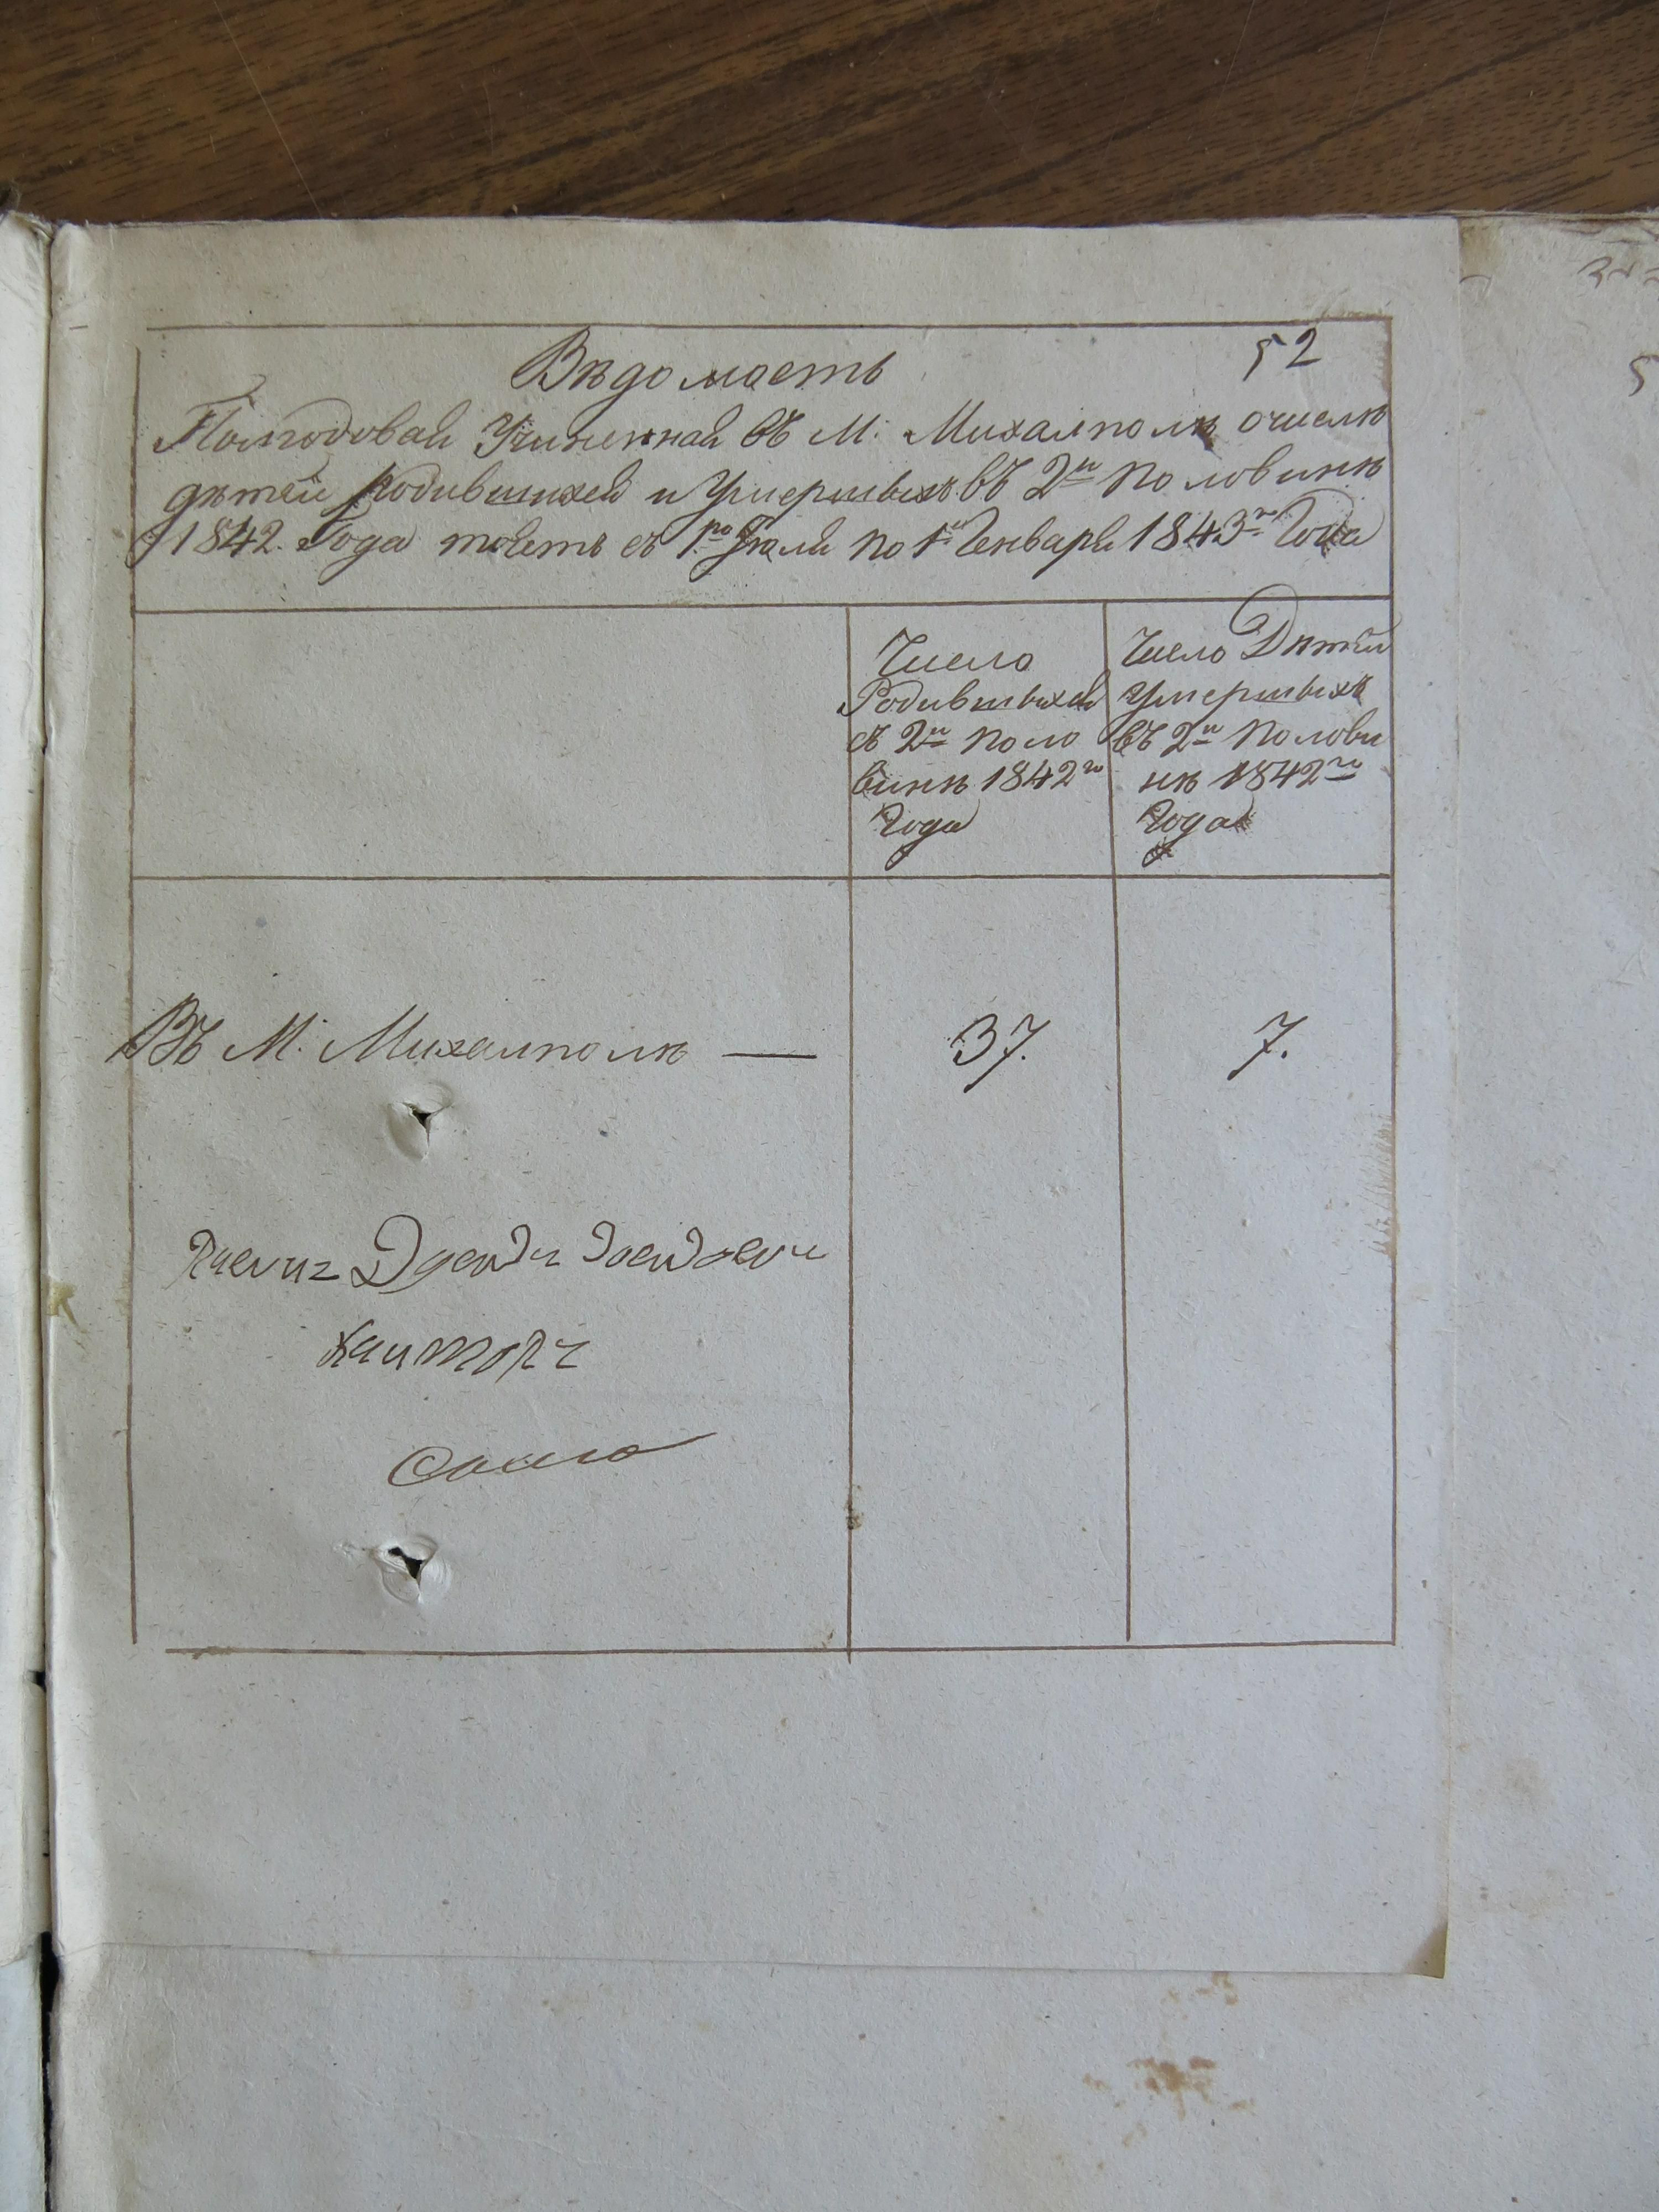 52
Вѣдомасть
Полгодовая Учиненная въ М: Михалполѣ очислѣ
дѣтей родившихся и Умершыхъ въ 2й половинѣ
1842. Года тоесть съ 1го Іюля по 1е Генваря 1843го Года
Число
Родившыхся
въ 2й поло
винѣ 1842го
Года
Число Дѣтей
Умершыхъ
въ 2й полови
нѣ 1842го
Года
Въ М: Михалполѣ — 37. 7.